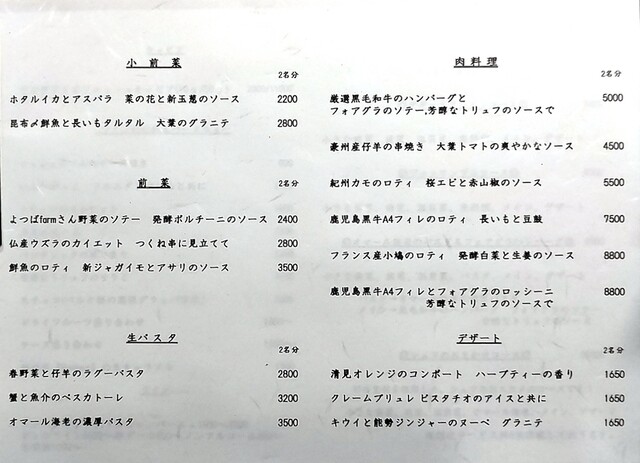 小前菜
2名分
ホタルイカとアスパラ　菜の花と新玉葱のソース　2200
昆布〆鮮魚と長いもタルタル　大葉のグラニテ　2800
前菜
2名分
よつばfarmさん野菜のソテー　発酵ポルチーニのソース　2400
仏産ウズラのカイエット　つくね串に見立てて　2800
鮮魚のロティ　新ジャガイモとアサリのソース　3500
生パスタ
2名分
春野菜と仔羊のラグーパスタ　2800
蟹と魚介のペスカトーレ　3200
オマール海老の濃厚パスタ　3500
肉料理
2名分
厳選黒毛和牛のハンバーグと　5000
フォアグラのソテー,芳醇なトリュフのソースで
豪州産仔羊の串焼き　大葉トマトの爽やかなソース　4500
紀州カモのロティ　桜エビと赤山椒のソース　5500
鹿児島黒牛A4フィレのロティ　長いもと豆鼓　7500
フランス産小鳩のロティ　発酵白菜と生姜のソース　8800
鹿児島黒牛A4フィレとフォアグラのロッシーニ　8800
芳醇なトリュフのソースで
デザート
2名分
清見オレンジのコンポート　ハーブティーの香り　1650
クレームブリュレ ピスタチオのアイスと共に　1650
キウイと能勢ジンジャーのヌーベ　グラニテ　1650